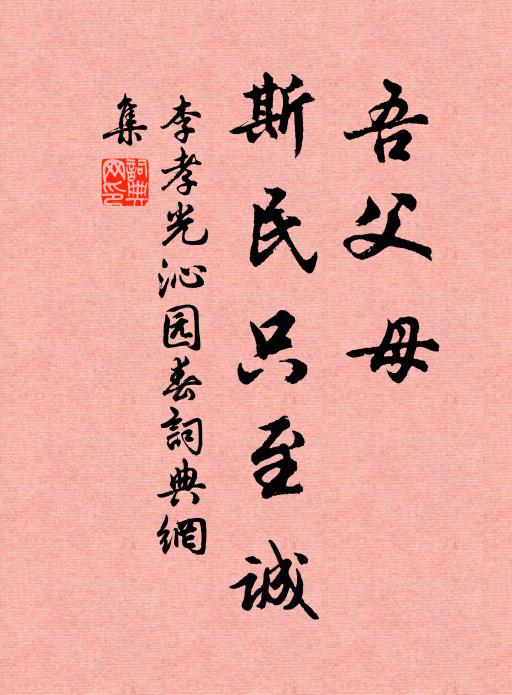 吾父母
斯民只至诚
李孝光沁园春詞典網
集
詞典
网印